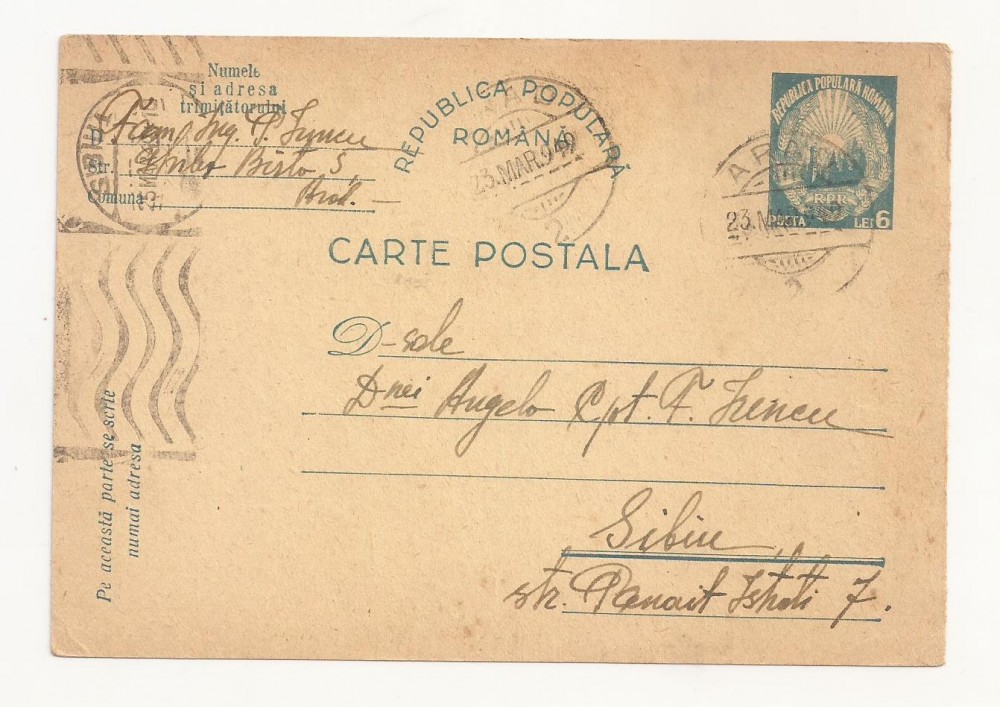 Numele
și adresa
trimițătorului
D.
Ing. P. Iuncu
Str.
5
Comuna
Arad.
SIBIU
REPUBLICA POPULARĂ
ROMÂNĂ
23.MAR.949
REPUBLICA POPULARĂ ROMÂNĂ
RPR
POSTA LEI 6
ARAD
23.MAR
CARTE POSTALA
D-sale
Dnei Angela Cpt. T. Iuncu
Sibiu
str. Panait Istrati 7.
Pe această parte se scrie
numai adresa